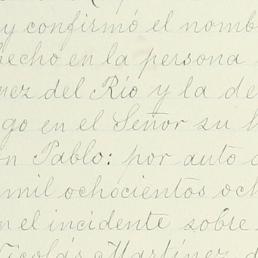 y confirmó el nomb
hecho en la persona
nez del Río y la de
go en el Señor su h
n Pablo: por auto d
mil ochocientos och
n el incidente sobre
Nicolás Martínez d